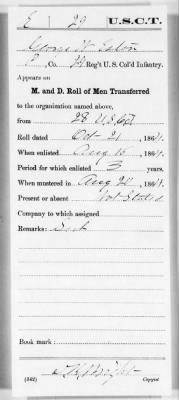 E | 29 | U.S.C.T.
George W.
, Co. Reg't U. S. Col'd Infantry.
Appears on
M. and D. Roll of Men Transferred
to the organization named above,
from 28 U.S.C.T.
Roll dated Oct 21, 1864.
When enlisted Aug 15, 1864.
Period for which enlisted 3 years.
When mustered in Aug 24, 1864.
Present or absent Not Stated
Company to which assigned
Remarks:
Book mark:
(342) Copyist